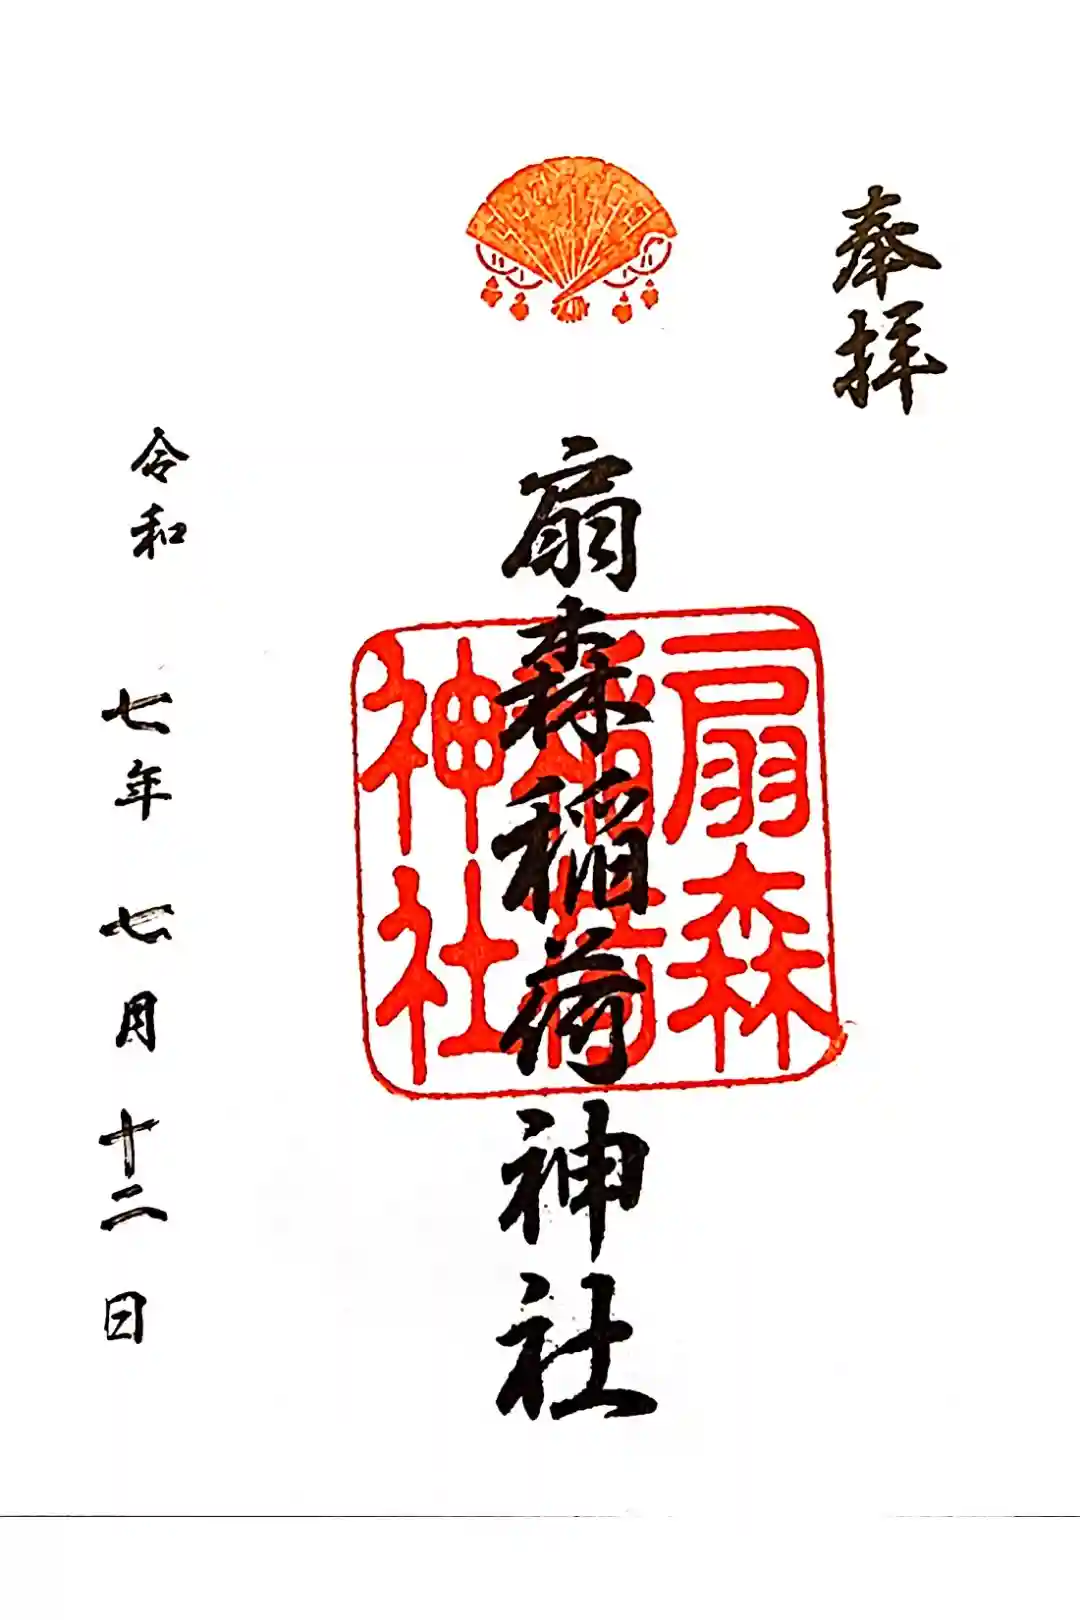 奉拝
扇森稲荷神社
扇森
稲荷
神社
令和七年七月十二日